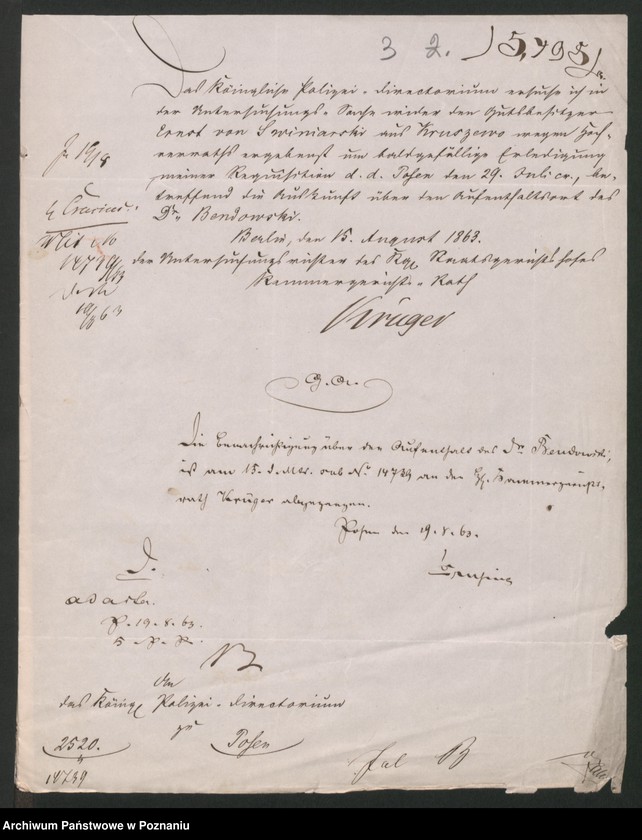 3 2. 5,795
Das Königliche Polizei-Directorium ersuche ich in
der Untersuchungs-Sache wider den Gutsbesitzer
Ernst von Swiniarski aus Kruszewo wegen Hoch-
verraths ergebenst um baldgefällige Erledigung
meiner Requisition d. d. Posen den 29. Juli cr., be-
treffend die Auskunft über den Aufenthaltsort des
Dr. Bendowski.
Berlin, den 15. August 1863.
der Untersuchungsrichter des Kgl. Staatsgerichtshofes
Kammergerichts-Rath
Krüger
Die Benachrichtigung über den Aufenthalt des Dr. Bendowski,
ist am 15. d. Mts. sub No. 14739 an den Kammergerichts-
rath Krüger abgegangen.
Posen den 19.8.63.
ad acta.
P. 19.8.63.
K. P. D.
An
das Königl. Polizei-Directorium
zu
Posen
2520.
14739
Archiwum Państwowe w Poznaniu